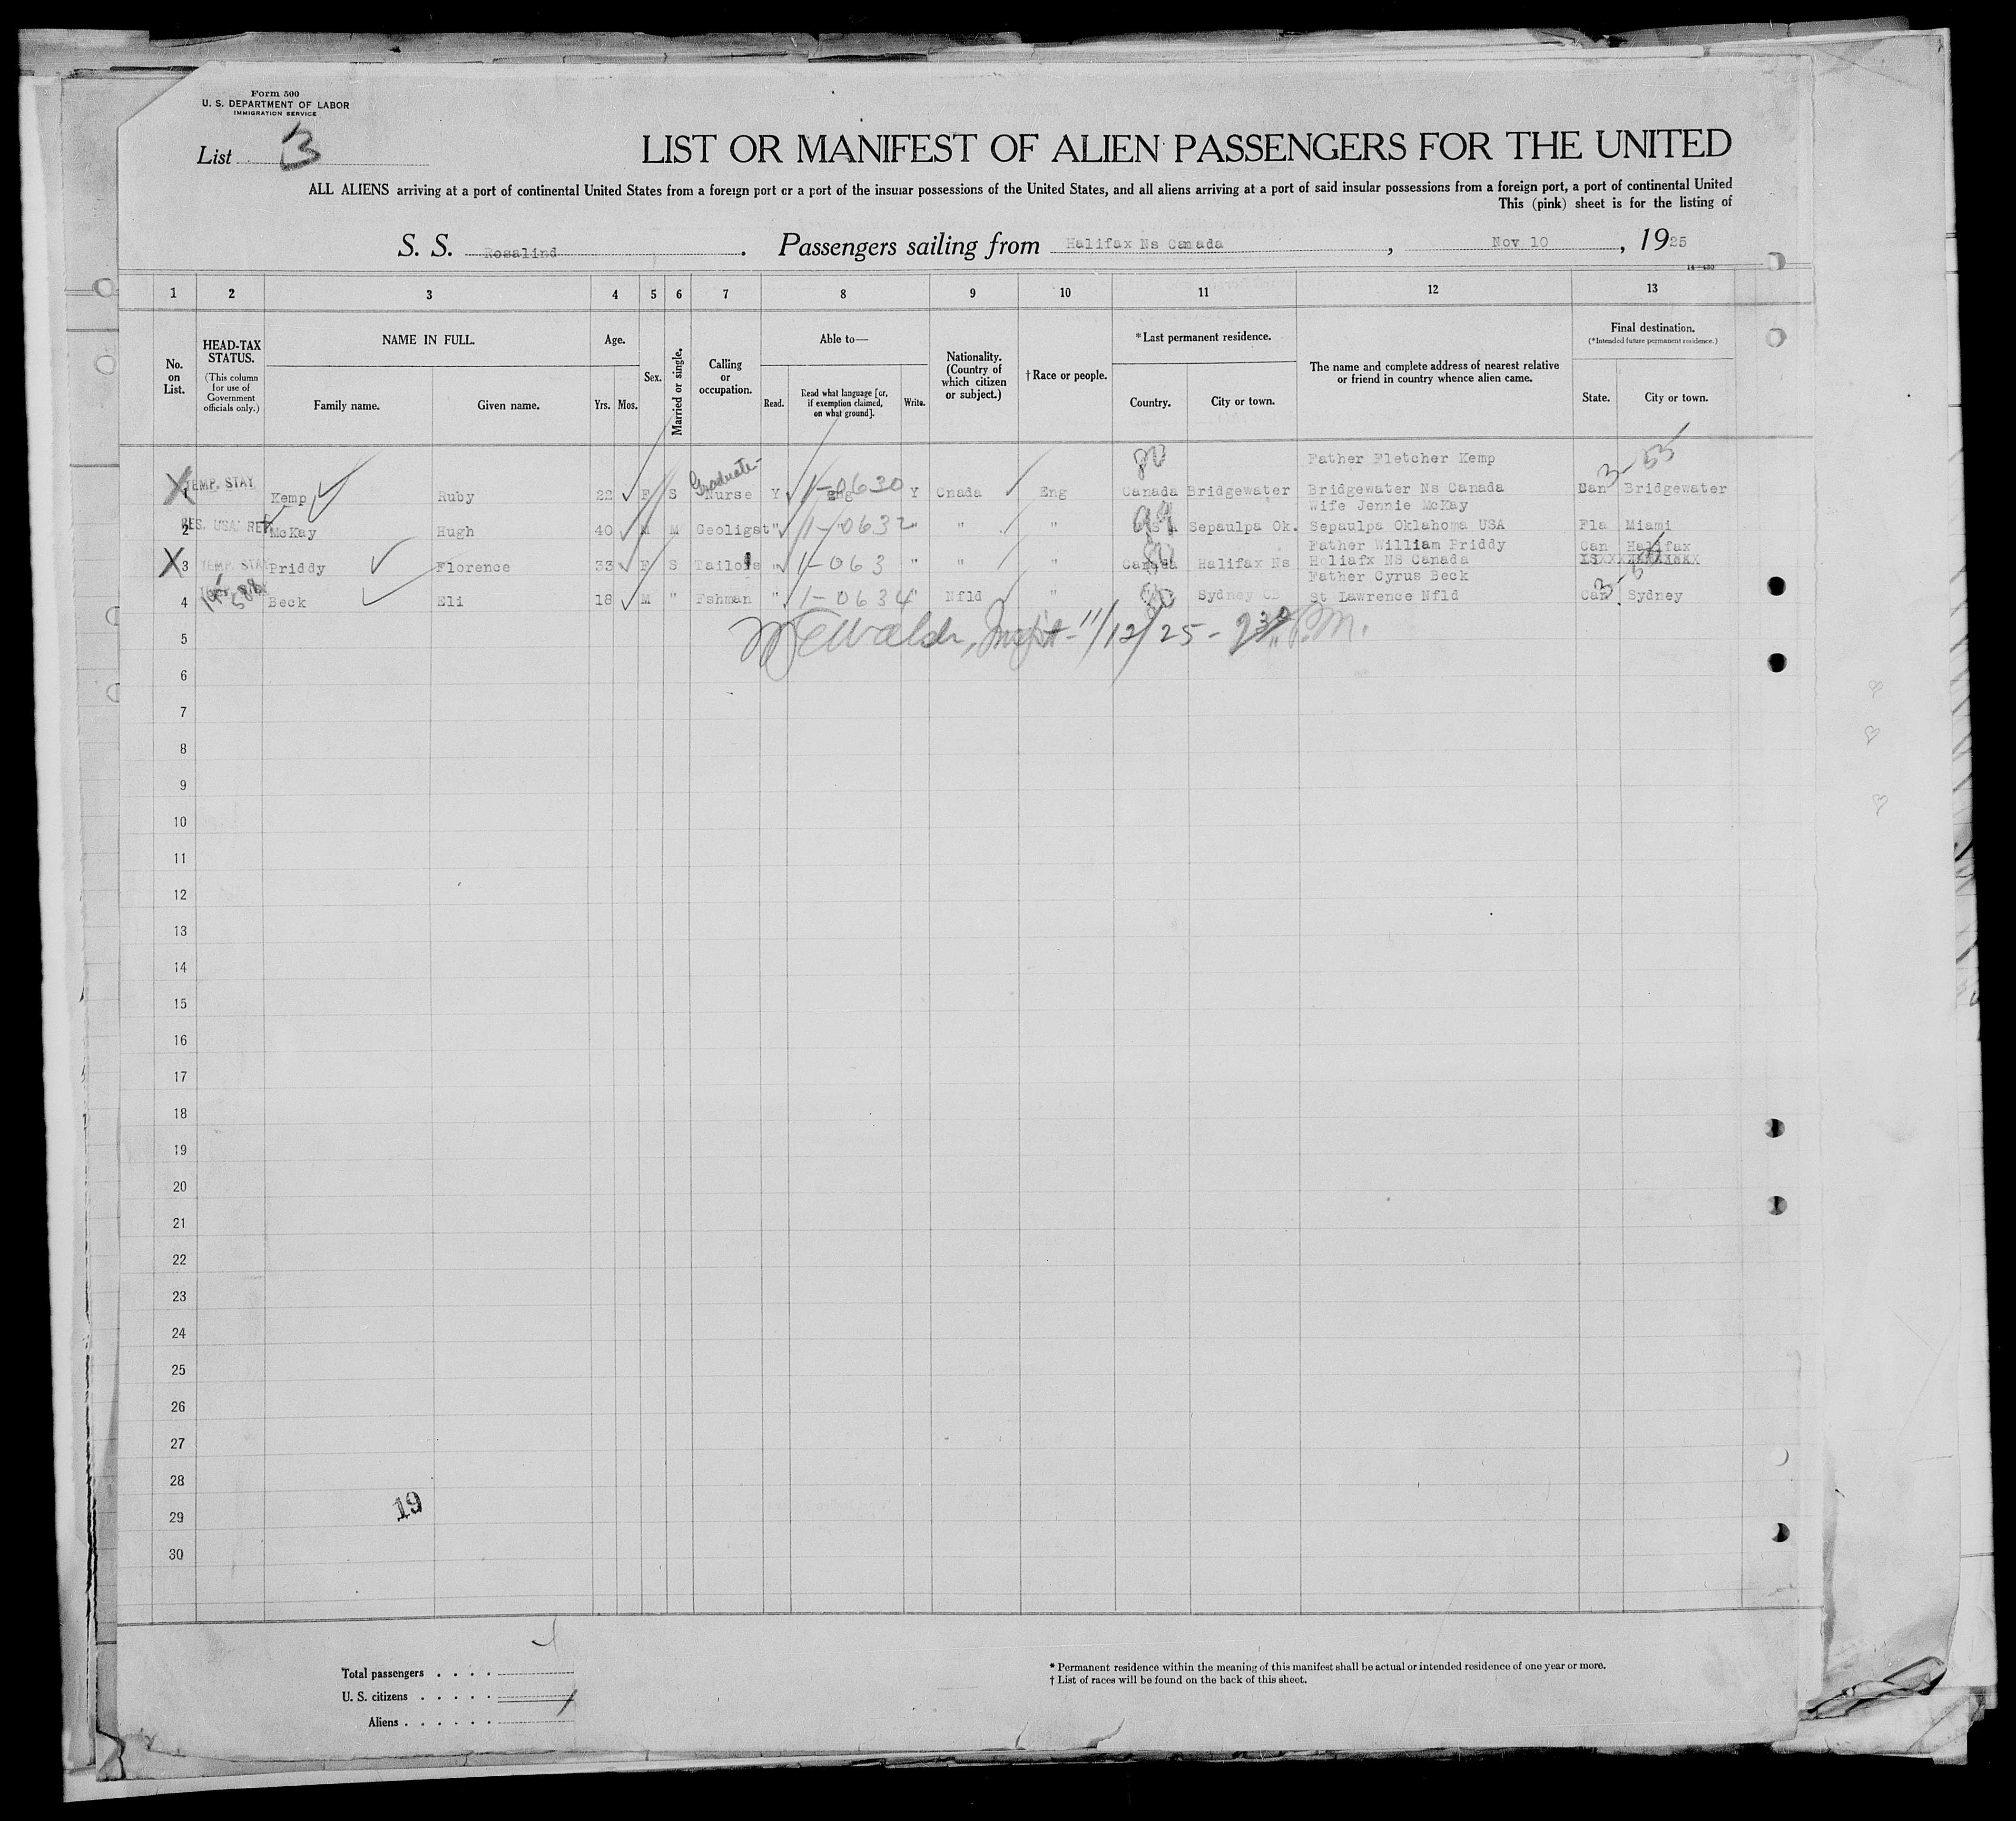 Form 500
U. S. DEPARTMENT OF LABOR
IMMIGRATION SERVICE
List 3
LIST OR MANIFEST OF ALIEN PASSENGERS FOR THE UNITED
ALL ALIENS arriving at a port of continental United States from a foreign port or a port of the insular possessions of the United States, and all aliens arriving at a port of said insular possessions from a foreign port, a port of continental United
This (pink) sheet is for the listing of
S. S. Rosalind. Passengers sailing from Halifax Ns Canada, Nov 10, 1925
1 2 3 4 5 6 7 8 9 10 11 12 13
No. on List.
HEAD-TAX STATUS.
(This column for use of Government officials only.)
NAME IN FULL.
Family name. Given name.
Age.
Yrs. Mos.
Sex.
Married or single.
Calling or occupation.
Able to—
Read. Read what language [or, if exemption claimed, on what ground]. Write.
Nationality. (Country of which citizen or subject.)
†Race or people.
*Last permanent residence.
Country. City or town.
The name and complete address of nearest relative or friend in country whence alien came.
Final destination.
(*Intended future permanent residence.)
State. City or town.
Father Fletcher Kemp
1 TEMP. STAY Kemp Ruby 22 F S Graduate- Nurse Y Eng 1-0630 Y Cnada Eng 80 Canada Bridgewater Bridgewater Ns Canada Can Bridgewater
Wife Jennie McKay
2 RES. USA. McKay Hugh 40 M M Geoligst " 1-0632 " " " Sepaulpa Ok. Sepaulpa Oklahoma USA Fla Miami
Father William Priddy Can Halifax
3 TEMP. STAY Priddy Florence 33 F S " 1-063 " " " Canada Halifax Ns Holiafx NS Canada
Father Cyrus Beck
4 Beck Eli 18 M " Fshman " 1-0634 " Nfld " Sydney CB St Lawrence Nfld Can Sydney
11/12/25 - P.M.
5
6
7
8
9
10
11
12
13
14
15
16
17
18
19
20
21
22
23
24
25
26
27
28
19
29
30
Total passengers . . . .
U. S. citizens . . . . .
Aliens . . . . . .
* Permanent residence within the meaning of this manifest shall be actual or intended residence of one year or more.
† List of races will be found on the back of this sheet.